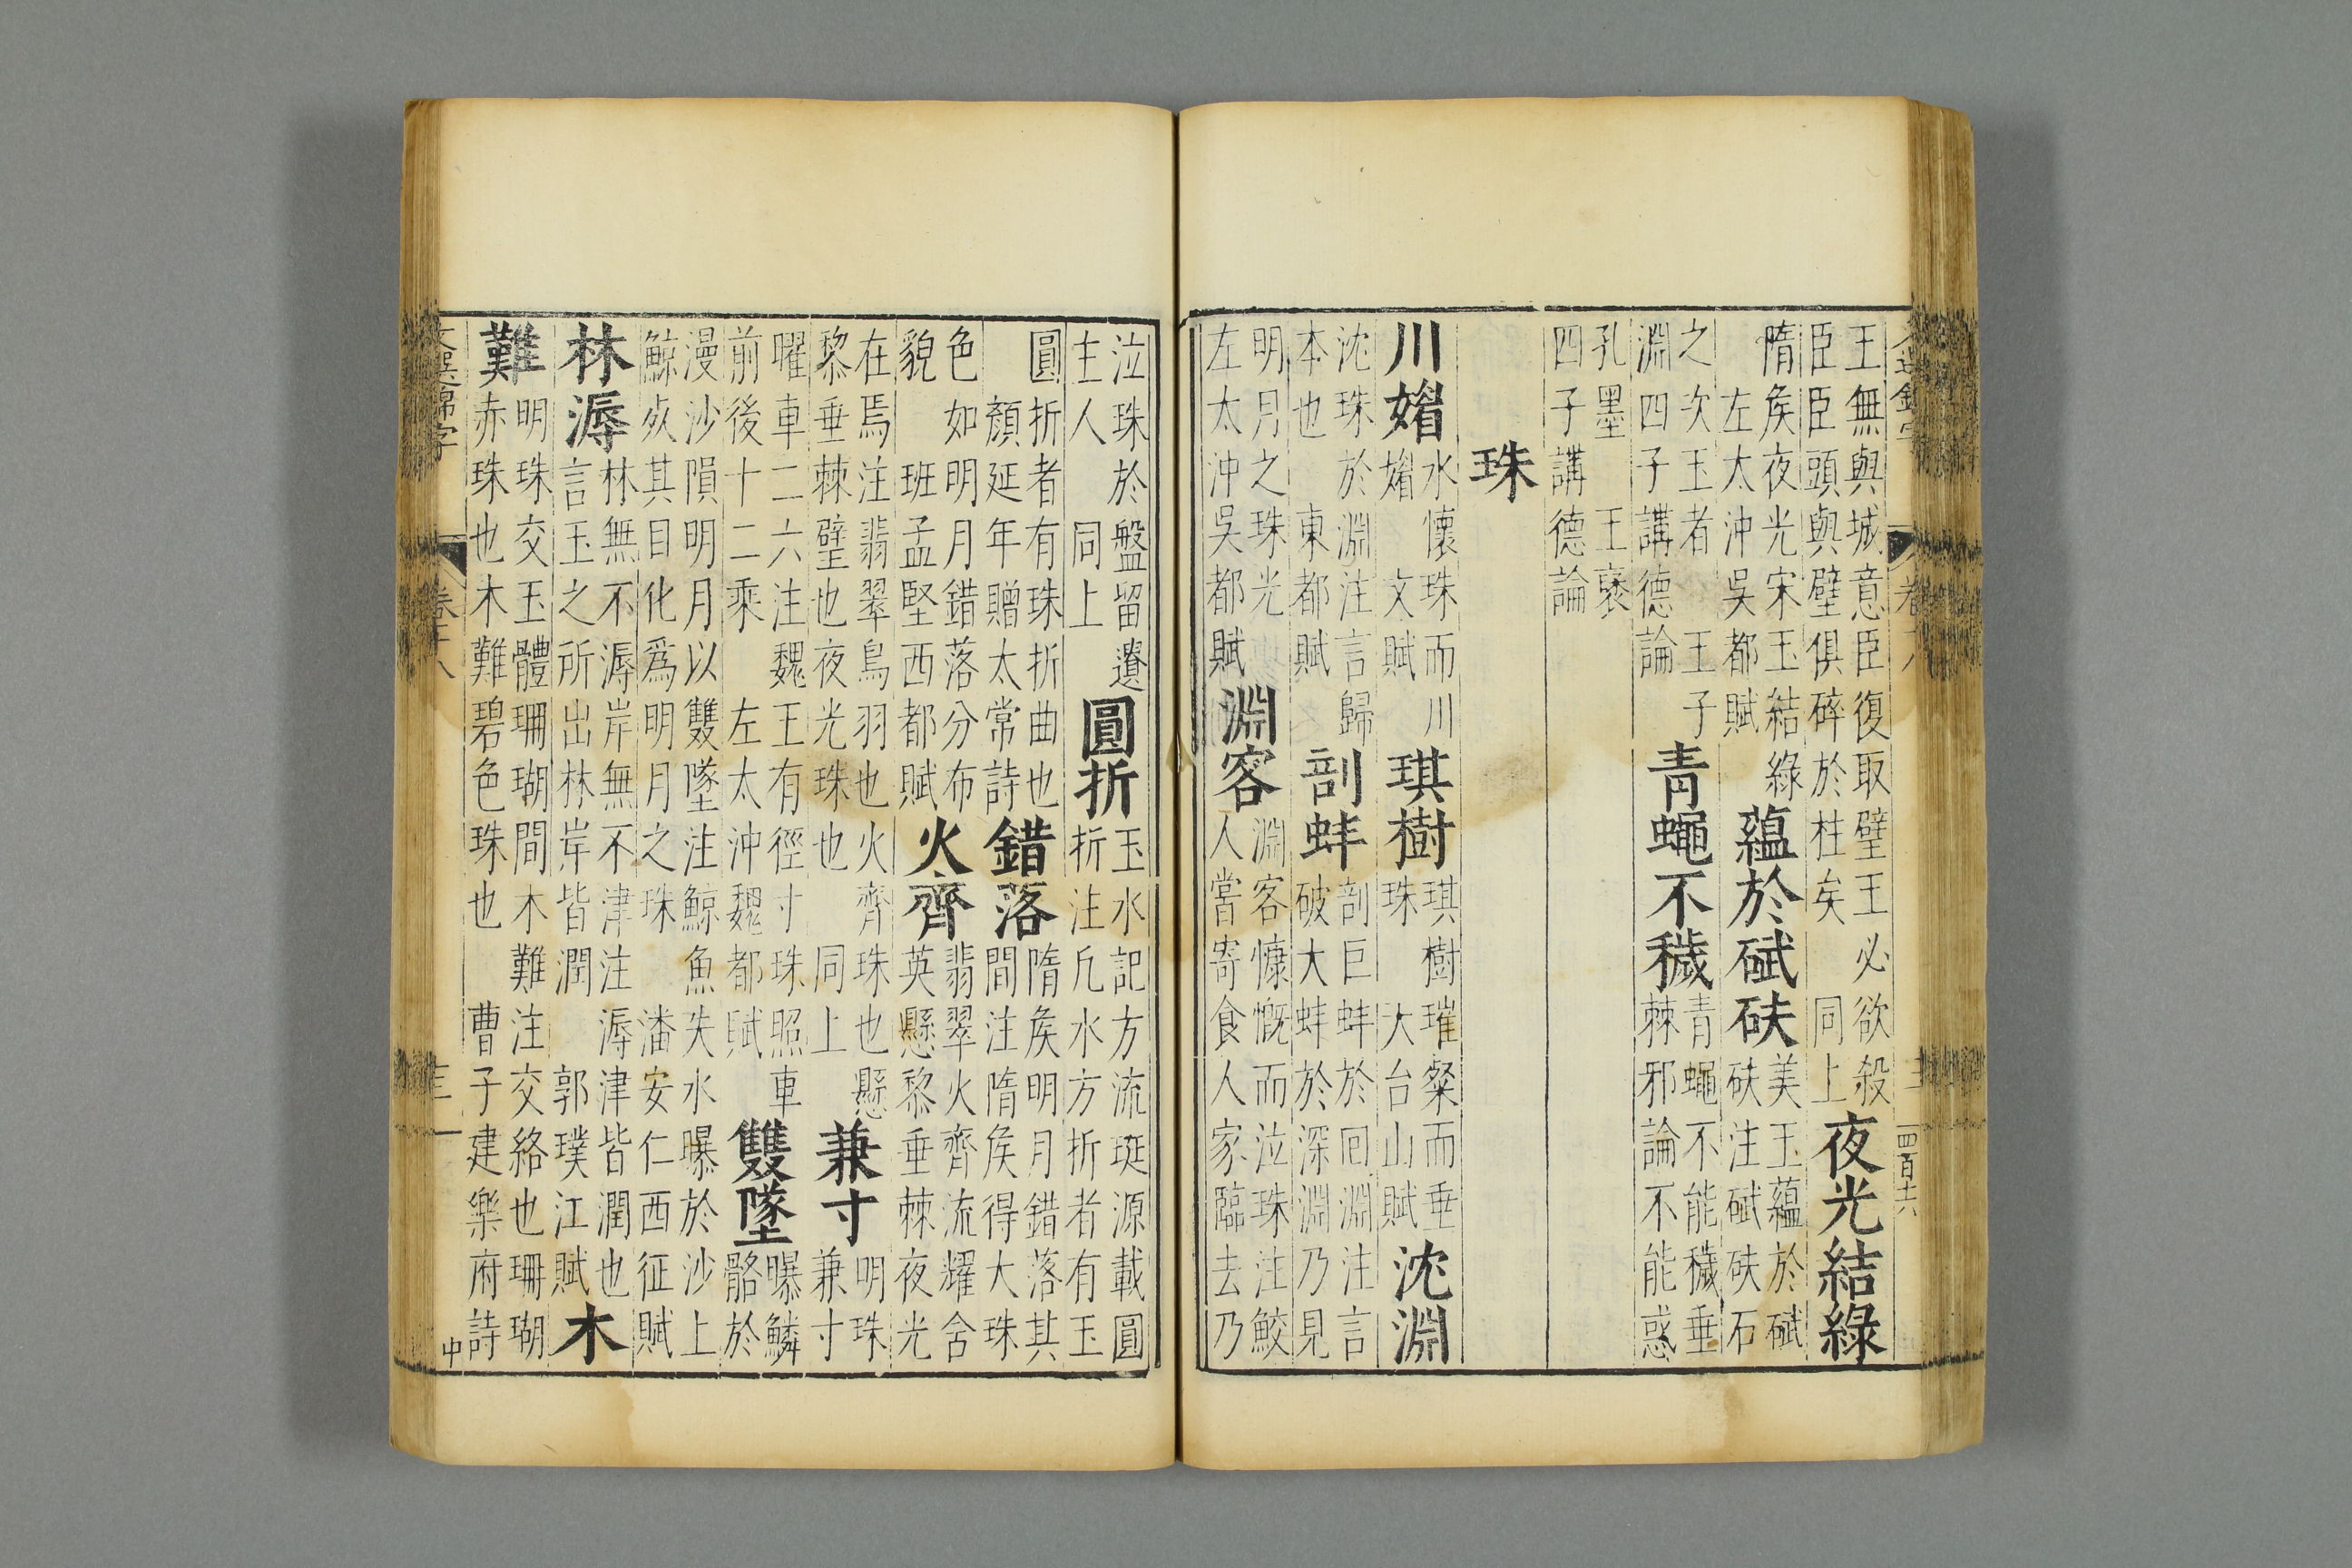 王無與城意臣復取璧王必欲殺
臣臣頭與璧俱碎於柱矣 同上
夜光結綠
隋矦夜光宋玉結綠
左太沖吳都賦
蘊於碔砆
美玉蘊於碔
砆注碔砆石
之次玉者 王子
淵四子講德論
青蠅不穢
青蠅不能穢垂
棘邪論不能惑
孔墨 王褒
四子講德論
珠
川媚
水懷珠而川
媚 文賦
琪樹
琪樹璀粲而垂
珠 大台山賦
沈淵
沈珠於淵注言歸
本也 東都賦
剖蚌
剖巨蚌於囘淵注言
破大蚌於深淵乃見
明月之珠光
左太沖吳都賦
淵客
淵客慷慨而泣珠注鮫
人甞寄食人家臨去乃
四百十六
泣珠於盤留遺
主人 同上
圓折
玉水記方流琁源載圓
折注凡水方折者有玉
圓折者有珠折曲也
顏延年贈太常詩
錯落
隋矦明月錯落其
間注隋矦得大珠
色如明月錯落分布
貌 班孟堅西都賦
火齊
翡翠火齊流耀含
英懸黎垂棘夜光
在焉注翡翠鳥羽也火齊珠也懸
黎垂棘璧也夜光珠也 同上
兼寸
明珠
兼寸
曜車二六注魏王有徑寸珠照車
前後十二乘 左太沖魏都賦
雙墜
曝鱗
骼於
漫沙隕明月以雙墜注鯨魚失水曝於沙上
鯨㱠其目化爲明月之珠 潘安仁西征賦
林溽
林無不溽岸無不津注溽津皆潤也
言玉之所出林岸皆潤 郭璞江賦
木
難
明珠交玉體珊瑚間木難注交絡也珊瑚
赤珠也木難碧色珠也 曹子建樂府詩
文選錦字
卷十八
中